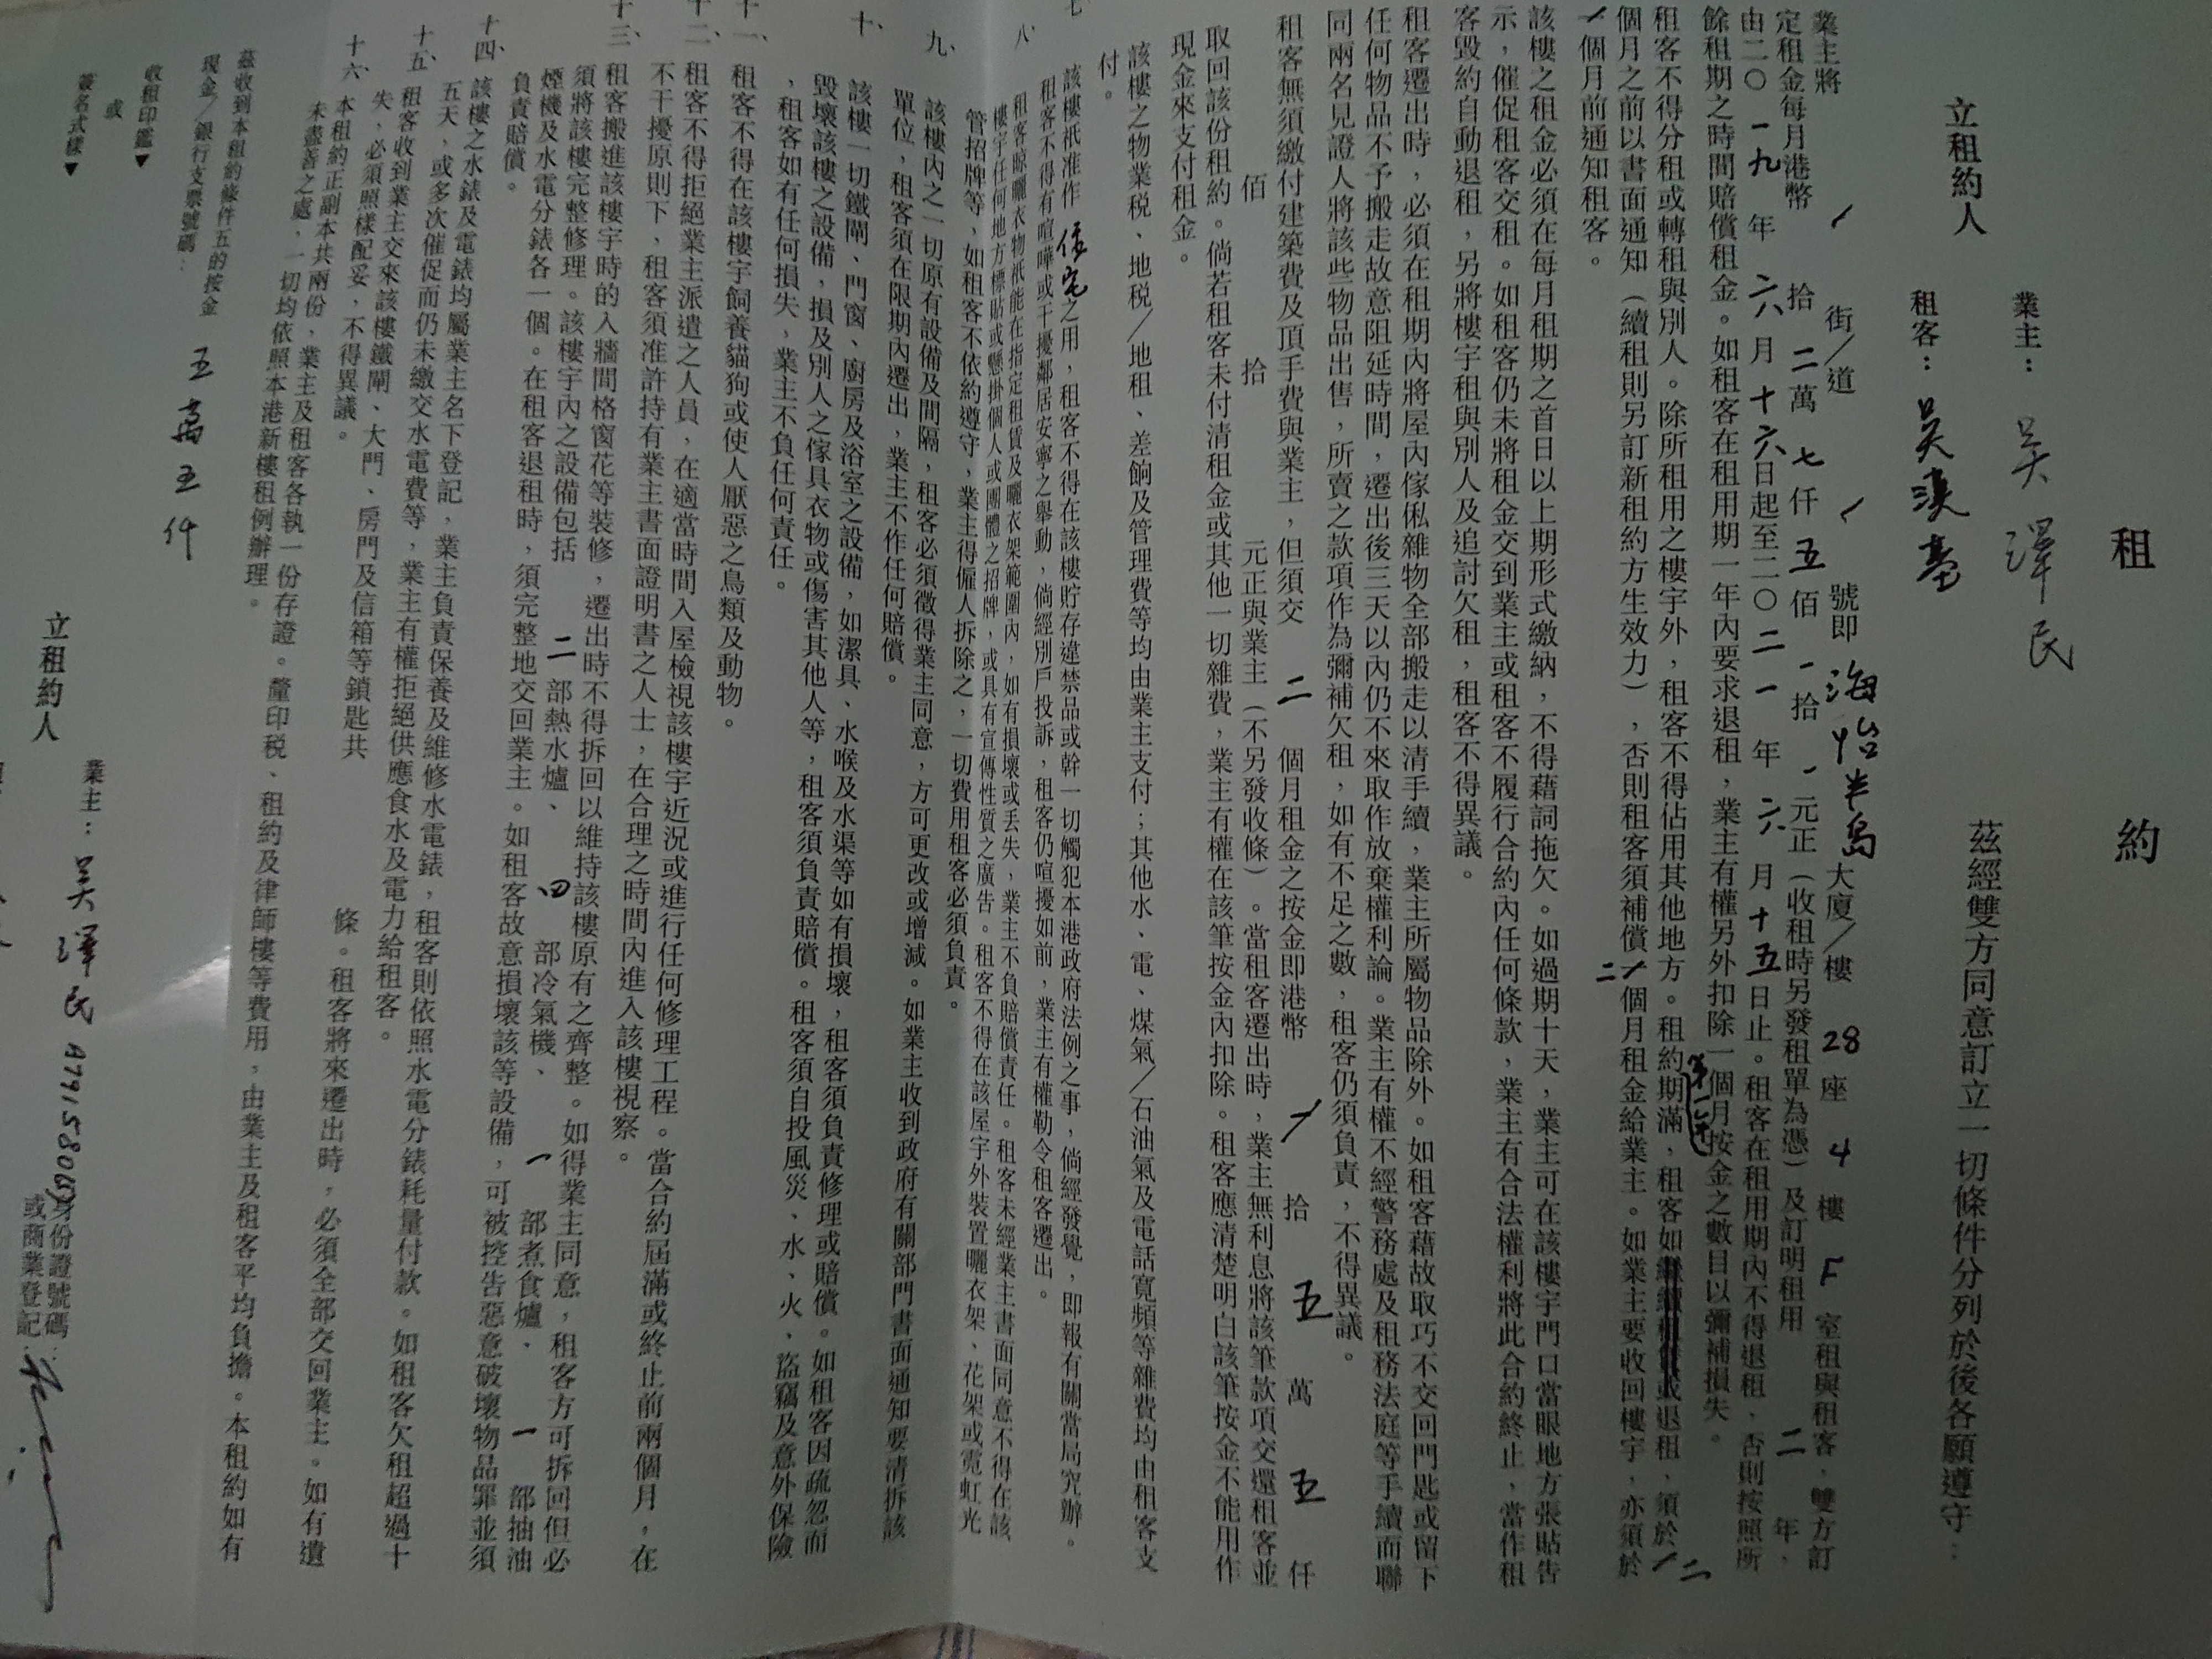 租約
立租約人
業主：吴澤民
租客：吴漢
茲經雙方同意訂立一切條件分列於後各願遵守：
業主將 / 街／道 / 號即海怡半島大廈／樓 28 座 4 樓 F 室租與租客，雙方訂
定租金每月港幣 / 拾二萬七仟五佰一拾、元正（收租時另發租單為憑）及訂明租用二年，
由二〇一九年六月十六日起至二〇二一年六月十五日止。租客在租用期內不得退租，否則按照所
餘租期之時間賠償租金。如租客在租用期一年內要求退租，業主有權另外扣除一個月按金之數目以彌補損失。
租客不得分租或轉租與別人。除所租用之樓宇外，租客不得佔用其他地方。租約期滿，租客如或退租，須於二
個月之前以書面通知（續租則另訂新租約方生效力），否則租客須補償二個月租金給業主。如業主要收回樓宇，亦須於
個月前通知租客。
該樓之租金必須在每月租期之首日以上期形式繳納，不得藉詞拖欠。如過期十天，業主可在該樓宇門口當眼地方張貼告
示，催促租客交租。如租客仍未將租金交到業主或租客不履行合約內任何條款，業主有合法權利將此合約終止，當作租
客毀約自動退租，另將樓宇租與別人及追討欠租，租客不得異議。
租客遷出時，必須在租期內將屋內傢俬雜物全部搬走以清手續，業主所屬物品除外。如租客藉故取巧不交回門匙或留下
任何物品不予搬走故意阻延時間，遷出後三天以內仍不來取作放棄權利論。業主有權不經警務處及租務法庭等手續而聯
同兩名見證人將該些物品出售，所賣之款項作為彌補欠租，如有不足之數，租客仍須負責，不得異議。
租客無須繳付建築費及頂手費與業主，但須交二個月租金之按金即港幣 / 拾五萬五仟
佰拾元正與業主（不另發收條）。當租客遷出時，業主無利息將該筆款項交還租客並
取回該份租約。倘若租客未付清租金或其他一切雜費，業主有權在該筆按金內扣除。租客應清楚明白該筆按金不能用作
現金來支付租金。
該樓之物業税、地税／地租、差餉及管理費等均由業主支付；其他水、電、煤氣／石油氣及電話寬頻等雜費均由租客支
付。
七、該樓衹准作住宅之用，租客不得在該樓貯存違禁品或幹一切觸犯本港政府法例之事，倘經發覺，即報有關當局究辦。
租客不得有喧嘩或干擾鄰居安寧之舉動，倘經別戶投訴，租客仍喧擾如前，業主有權勒令租客遷出。
八、租客晾曬衣物衹能在指定租賃及曬衣架範圍內，如有損壞或丟失，業主不負賠償責任。租客未經業主書面同意不得在該
樓宇任何地方標貼或懸掛個人或團體之招牌，或具有宣傳性質之廣告。租客不得在該屋宇外裝置曬衣架、花架或霓虹光
管招牌等，如租客不依約遵守，業主得僱人拆除之，一切費用租客必須負責。
九、該樓內之一切原有設備及間隔，租客必須徵得業主同意，方可更改或增減。如業主收到政府有關部門書面通知要清拆該
單位，租客須在限期內遷出，業主不作任何賠償。
十、該樓一切鐵閘、門窗、廚房及浴室之設備，如潔具、水喉及水渠等如有損壞，租客須負責修理或賠償。如租客因疏忽而
毀壞該樓之設備，損及別人之傢具衣物或傷害其他人等，租客須負責賠償。租客須自投風災、水、火、盜竊及意外保險
，租客如有任何損失，業主不負任何責任。
十一、租客不得在該樓宇飼養貓狗或使人厭惡之鳥類及動物。
十二、租客不得拒絕業主派遣之人員，在適當時間入屋檢視該樓宇近況或進行任何修理工程。當合約屆滿或終止前兩個月，在
不干擾原則下，租客須准許持有業主書面證明書之人士，在合理之時間內進入該樓視察。
十三、租客搬進該樓宇時的入牆間格窗花等裝修，遷出時不得拆回以維持該樓原有之齊整。如得業主同意，租客方可拆回但必
須將該樓完整修理。該樓宇內之設備包括二部熱水爐、四部冷氣機、一部煮食爐、一部抽油
煙機及水電分錶各一個。在租客退租時，須完整地交回業主。如租客故意損壞該等設備，可被控告惡意破壞物品罪並須
負責賠償。
十四、該樓之水錶及電錶均屬業主名下登記，業主負責保養及維修水電錶，租客則依照水電分錶耗量付款。如租客欠租超過十
五天，或多次催促而仍未繳交水電費等，業主有權拒絕供應食水及電力給租客。
十五、租客收到業主交來該樓鐵閘、大門、房門及信箱等鎖匙共條。租客將來遷出時，必須全部交回業主。如有遺
失，必須照樣配妥，不得異議。
十六、本租約正副本共兩份，業主及租客各執一份存證。釐印税、租約及律師樓等費用，由業主及租客平均負擔。本租約如有
未盡善之處，一切均依照本港新樓租例辦理。
茲收到本租約條件五的按金
現金／銀行支票號碼：五萬五仟
收租印鑑▼
或
簽名式樣▼
立租約人
業主：吴澤民
身份證號碼：
或商業登記